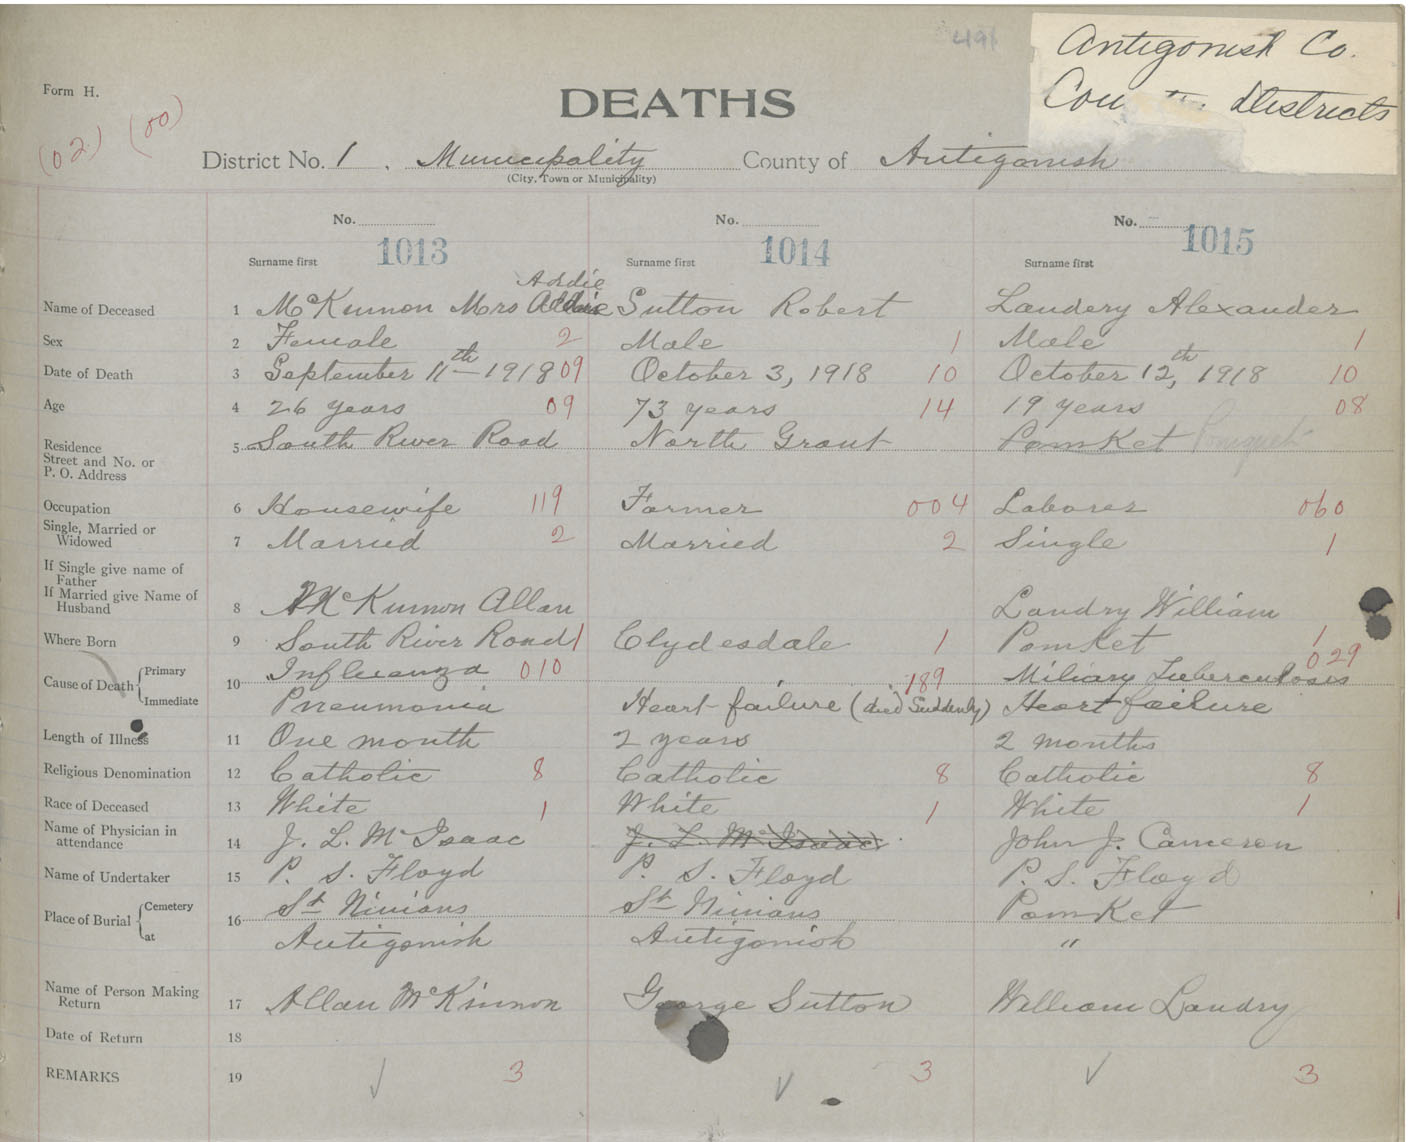 491
Antigonish Co.
Districts
Form H.
(02) (00)
DEATHS
District No. 1 . Municipality County of Antigonish
(City, Town or Municipality)
No. No. No.
1013 1014 1015
Surname first Surname first Surname first
Addie
Name of Deceased 1 McKinnon Mrs Sutton Robert Landery Alexander
Sex 2 Female 2 Male 1 Male 1
Date of Death 3 September 11th 1918 09 October 3, 1918 10 October 12th, 1918 10
Age 4 26 years 09 73 years 14 19 years 08
Residence
Street and No. or
P. O. Address
5 South River Road North Grant PomKet Pomquet
Occupation 6 Housewife 119 Farmer 004 Laborer 060
Single, Married or
Widowed 7 Married 2 Married 2 Single 1
If Single give name of
Father
If Married give Name of
Husband 8 McKinnon Allan Landry William
Where Born 9 South River Road 1 Clydesdale 1 PomKet 1
Cause of Death Primary
Immediate
10 Influenza 010 189 Miliary Tuberculosis 029
Pneumonia Heart failure (died Suddenly) Heart failure
Length of Illness 11 One month 2 years 2 months
Religious Denomination 12 Catholic 8 Catholic 8 Catholic 8
Race of Deceased 13 White 1 White 1 White 1
Name of Physician in
attendance 14 J. L. McIsaac J. L. McIsaac John J. Cameron
Name of Undertaker 15 P. S. Floyd P. S. Floyd P. S. Floyd
Place of Burial Cemetery
at
16 St Ninians St Ninians PomKet
Antigonish Antigonish "
Name of Person Making
Return 17 Allan McKinnon George Sutton William Landry
Date of Return 18
REMARKS 19 3 3 3